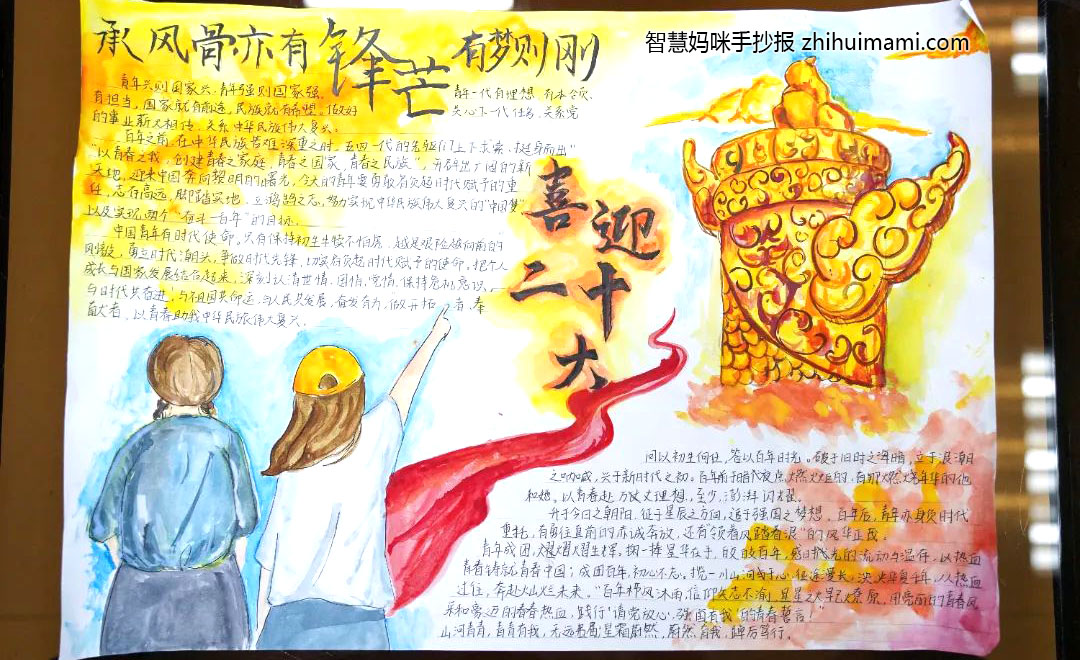 承风骨亦有锋芒 有梦则刚
智慧妈咪手抄报 zhihuimami.com
青年兴则国家兴,青年强则国家强。
青年一代有理想、有本领、
有担当,国家就有前途,民族就有希望。做好
关心下一代任务,关系党
的事业薪火相传,关系中华民族伟大复兴。
百年之前,在中华民族苦难深重之时,五四一代的先驱们上下求索,挺身而出"
以青春之我,创建青春之家庭,青春之国家,青春之民族",开辟出了国的新
天地,迎来中国奔向黎明的曙光,今天的青年要勇敢肩负起时代赋予的重
任,志存高远,脚踏实地,立鸿鹄之志,努力实现中华民族伟大复兴的"中国梦"
以及实现两个"百年"的目标。
中国青年有时代使命。只有保持初生牛犊不怕虎、越是艰险越向前的
风貌,勇立时代潮头,争做时代先锋,切实肩负起时代赋予的使命。把个人
成长与国家发展结合起来,深刻认清世情、国情、党情,保持危机意识,
与时代共奋进,与祖国共命运,与人民共发展,奋发有为,做开拓者、奉
献者,以青春助我中华民族伟大复兴。
喜迎
二十
大
问以初生何住,答以百年时光。破于旧时之海暗,立于浪潮
之呐喊,兴于新时代之初。百年前
和她。以青春赴万丈理想,至少,澎湃闪耀。
升于今日之朝阳,征于星辰之方向,适于强国之梦想。百年后,青年亦身负时代
重托,有勇往直前的赤诚奔放,还有"领着风踏着浪"的风华正茂。
青年成团,熠熠生辉。掬一捧星华在手,皎皎百年,感日抛光的流动与温存,以热血
青春铸就青春中国;成团百年,初心不忘。揽一川山河或于心,征途漫长,泱泱华夏千年,以热血
过往,奔赴火山烂未来。"百年栉风沐雨,信仰矢志不渝,星星之火早已燎原。用亮丽的青春风
采和豪迈的青春热血,践行"请党放心,强国有我"的青春誓言!
山河青青,青青有我,